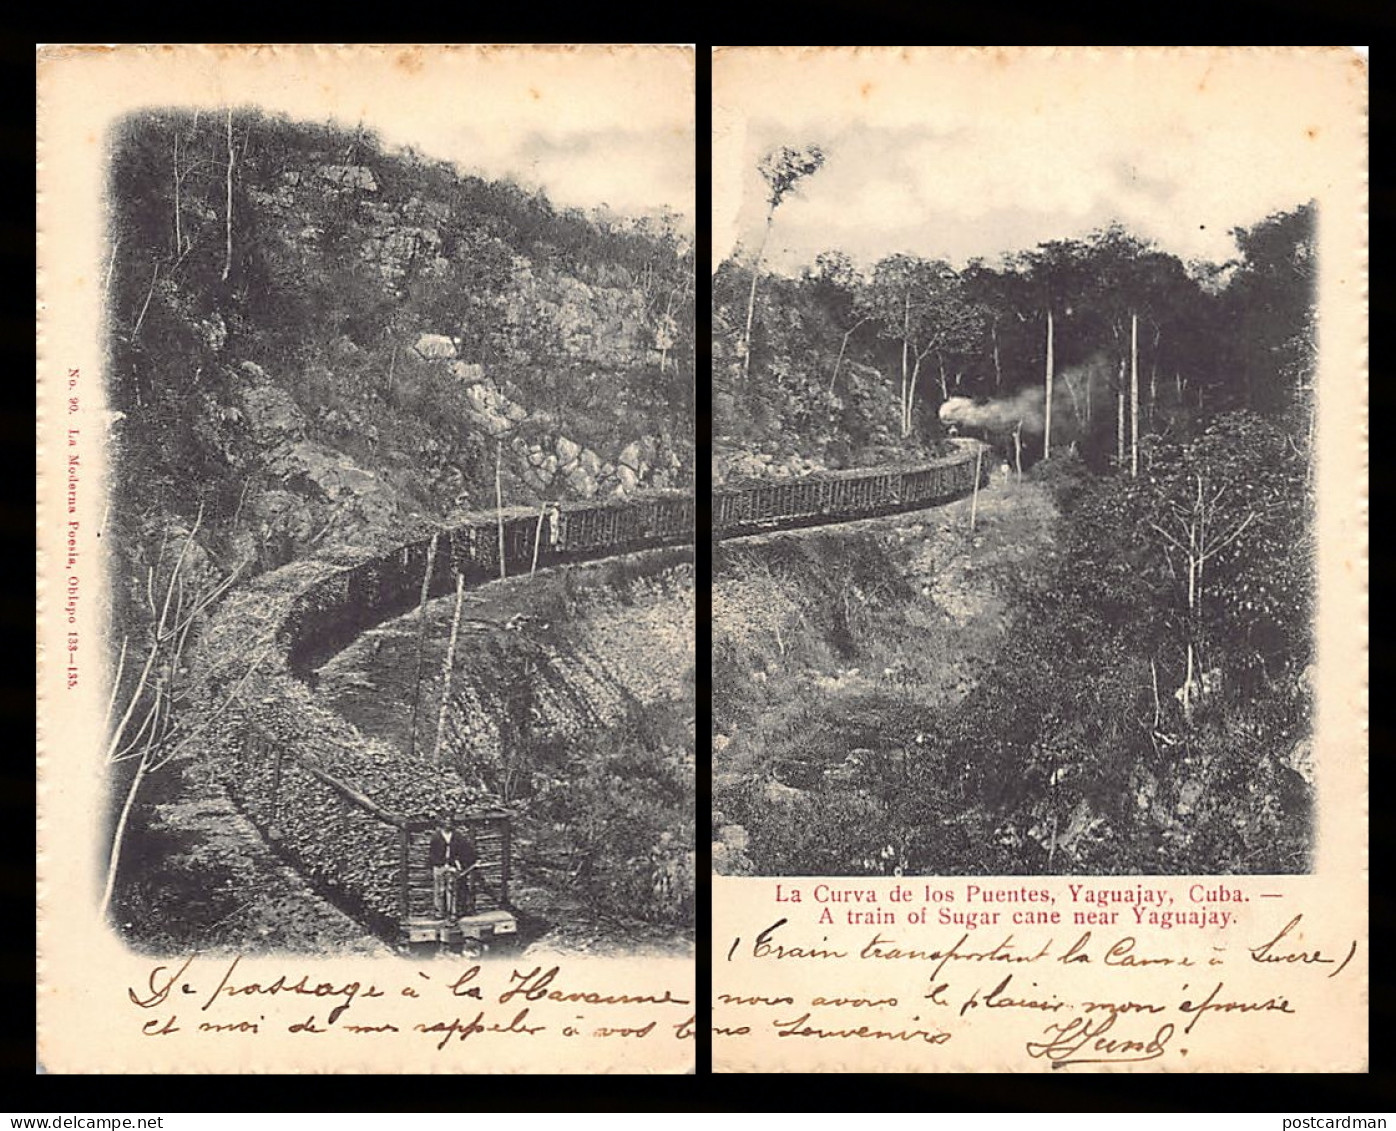 No. 90. La Moderna Poesia, Obispo 133—135.
La Curva de los Puentes, Yaguajay, Cuba. —
A train of Sugar cane near Yaguajay.
(Train transportant la Canne à Sucre)
De passage à la Havanne nous avons le plaisir mon épouse
et moi de nous rappeler à vos bons Souvenirs
postcardman